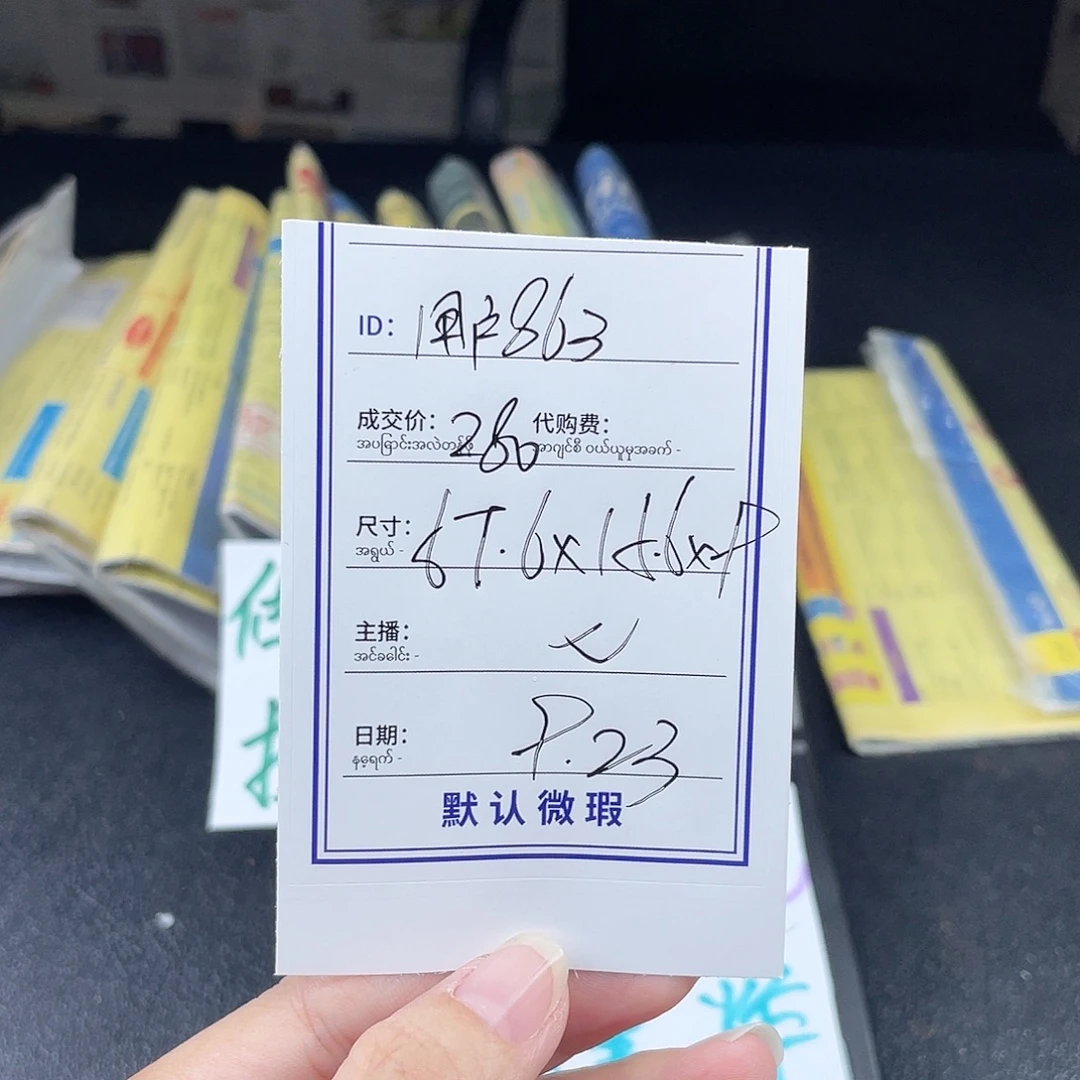 ID: 用户863
成交价: 280 代购费:
အပြောင်းအလဲတန်ဖိုး အေဂျင်စီ ဝယ်ယူမှုအခကြေး -
尺寸: 57.6x15.6x9
အရွယ် -
主播:
အင်ခေါင်း -
日期: 9.23
နေ့ရက် -
默认微瑕